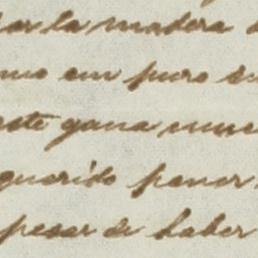 la madera
en puro
este gana
querido poner
pesar de haber